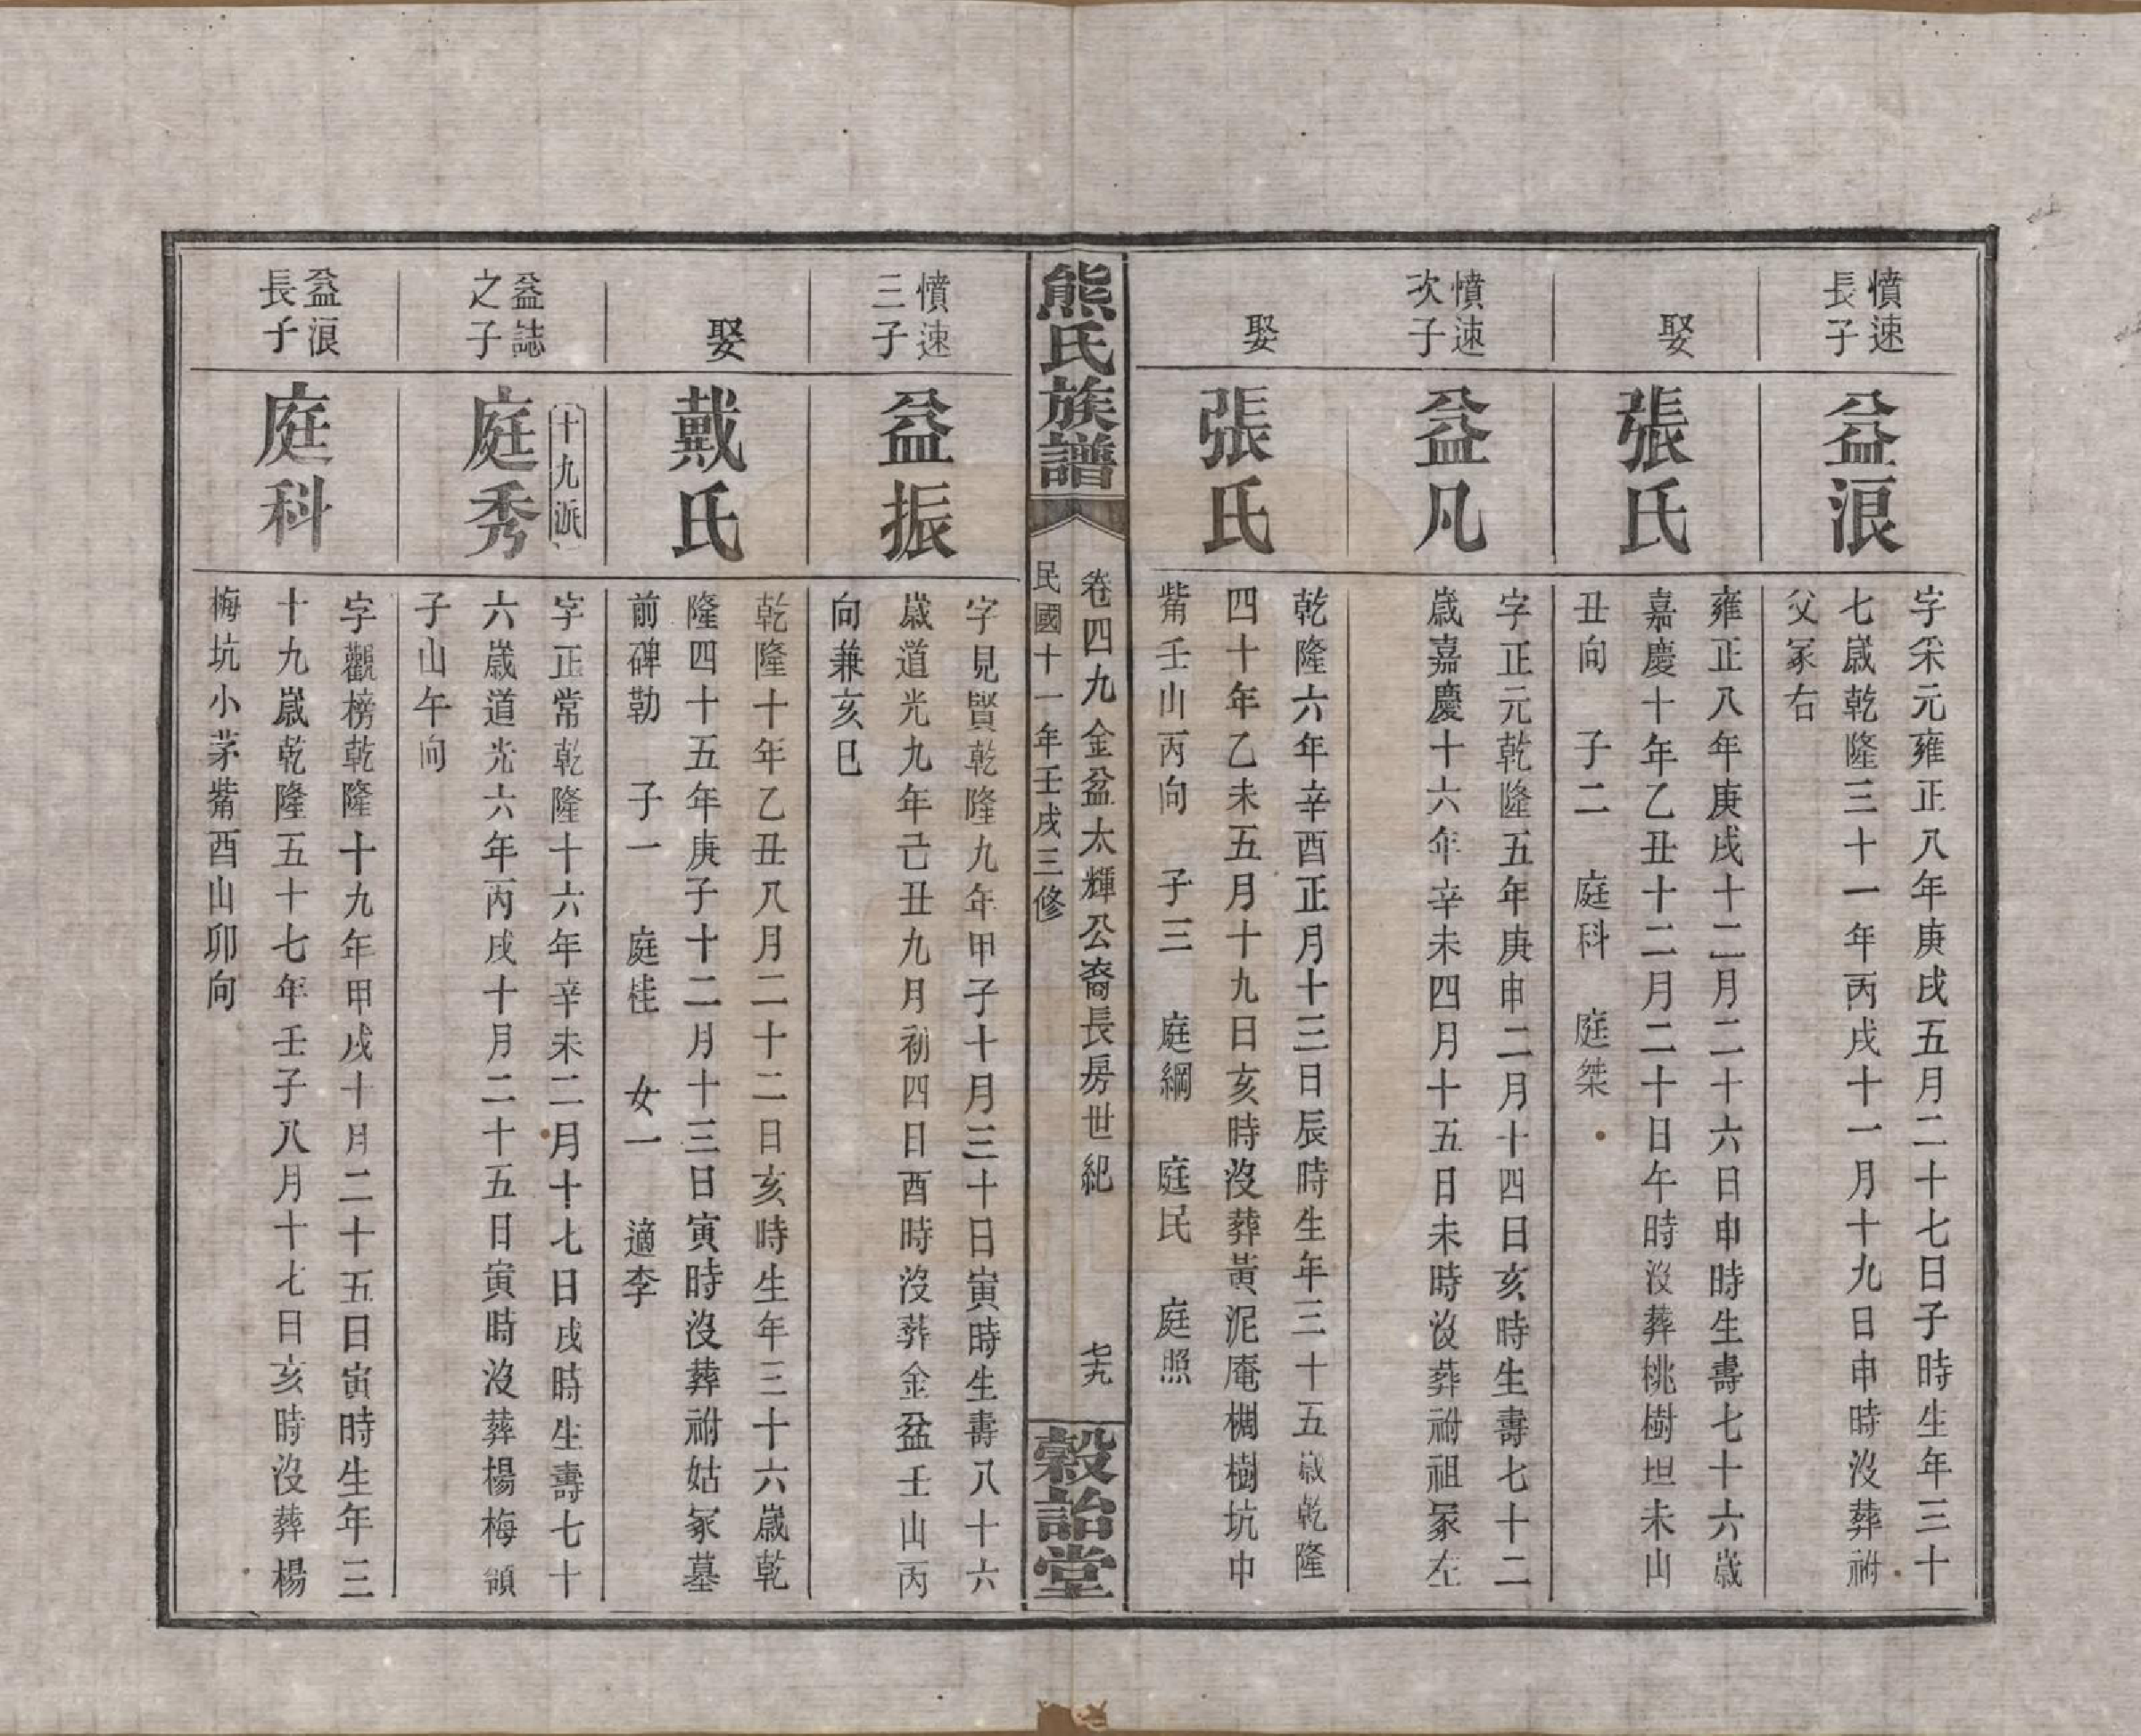 憤速
長子
益浪
字釆元雍正八年庚戌五月二十七日子時生年三十
七歲乾隆三十一年丙戌十一月十九日申時沒葬祔
父冢右
娶
張氏
雍正八年庚戌十二月二十六日申時生壽七十六歲
嘉慶十年乙丑十二月二十日午時沒葬桃樹坦未山
丑向 子二 庭科 庭桀
憤速
次子
益凡
字正元乾隆五年庚申二月十四日亥時生壽七十二
歲嘉慶十六年辛未四月十五日未時沒葬祔祖冢左
娶
張氏
乾隆六年辛酉正月十三日辰時生年三十五歲乾隆
四十年乙未五月十九日亥時沒葬黃泥庵棡樹坑中
觜壬山丙向 子三 庭綱 庭民 庭照
熊氏族譜
卷四九金盆太輝公裔長房世紀 七十九
民國十一年壬戌三修
穀詒堂
憤速
三子
益振
字見賢乾隆九年甲子十月三十日寅時生壽八十六
歲道光九年己丑九月初四日酉時沒葬金盆壬山丙
向兼亥巳
娶
戴氏
乾隆十年乙丑八月二十二日亥時生年三十六歲乾
隆四十五年庚子十二月十三日寅時沒葬祔姑冢墓
前碑勒 子一 庭桂 女一 適李
益誌
之子
十九派
庭秀
字正常乾隆十六年辛未二月十七日戌時生壽七十
六歲道光六年丙戌十月二十五日寅時沒葬楊梅嶺
子山午向
益浪
長子
庭科
字觀榜乾隆十九年甲戌十月二十五日寅時生年三
十九歲乾隆五十七年壬子八月十七日亥時沒葬楊
梅坑小茅觜酉山卯向